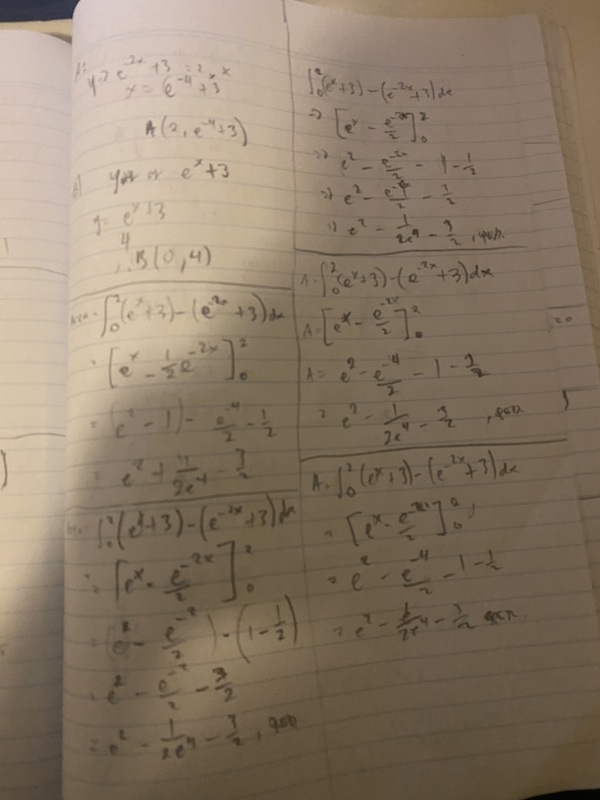 A:
y = e^{-2x} + 3
x = e^{-4} + 3
A(2, e^{-4}+3)
b) e^x + 3
y = e^x + 3
4
∴ B(0, 4)
Area = ∫_0^2 (e^x+3) - (e^{-2x} + 3) dx
= [e^x - 1/2 e^{-2x}]_0^2
= (e^2 - 1) - e^{-4}/2 - 1/2
= e^2 + 1/2e^4 - 3/2
Area = ∫_0^2 (e^x+3) - (e^{-2x} + 3) dx
= [e^x - e^{-2x}/2]_0^2
= (e^2 - e^{-2}/2) - (1 - 1/2)
= e^2 - e^{-2}/2 - 3/2
= e^2 - 1/2e^4 - 3/2, QED
∫_0^2 (e^x+3) - (e^{-2x}+3) dx
⇒ [e^x - e^{-2x}/2]_0^2
⇒ e^2 - e^{-2x}/2 - 1 - 1/2
⇒ e^2 - e^{-4}/2 - 3/2
⇒ e^2 - 1/2e^4 - 3/2, QED.
A = ∫_0^2 (e^x+3) - (e^{-2x}+3) dx
A = [e^x - e^{-2x}/2]_0^2
A = e^2 - e^{-4}/2 - 1 - 1/2
= e^2 - 1/2e^4 - 3/2, QED.
A = ∫_0^2 (e^x+3) - (e^{-2x}+3) dx
= [e^x - e^{-2x}/2]_0^2
= e^2 - e^{-4}/2 - 1 - 1/2
= e^2 - 1/2e^4 - 3/2 QED.